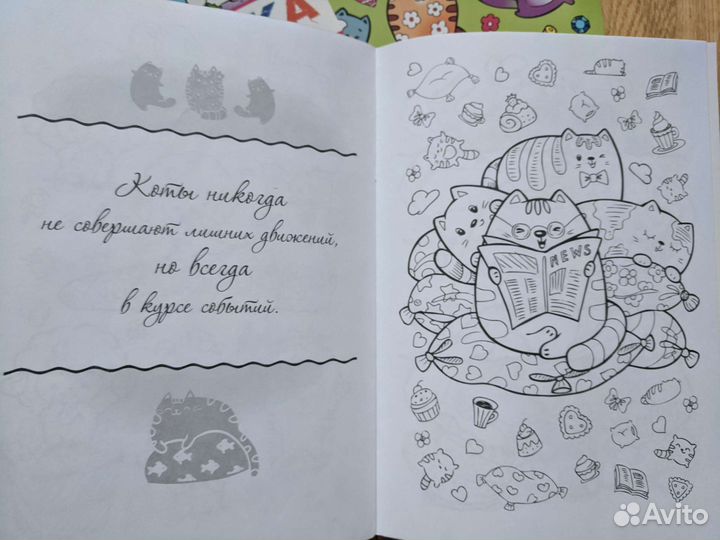 Коты никогда
не совершают лишних движений,
но всегда
в курсе событий.
NEWS
Avito